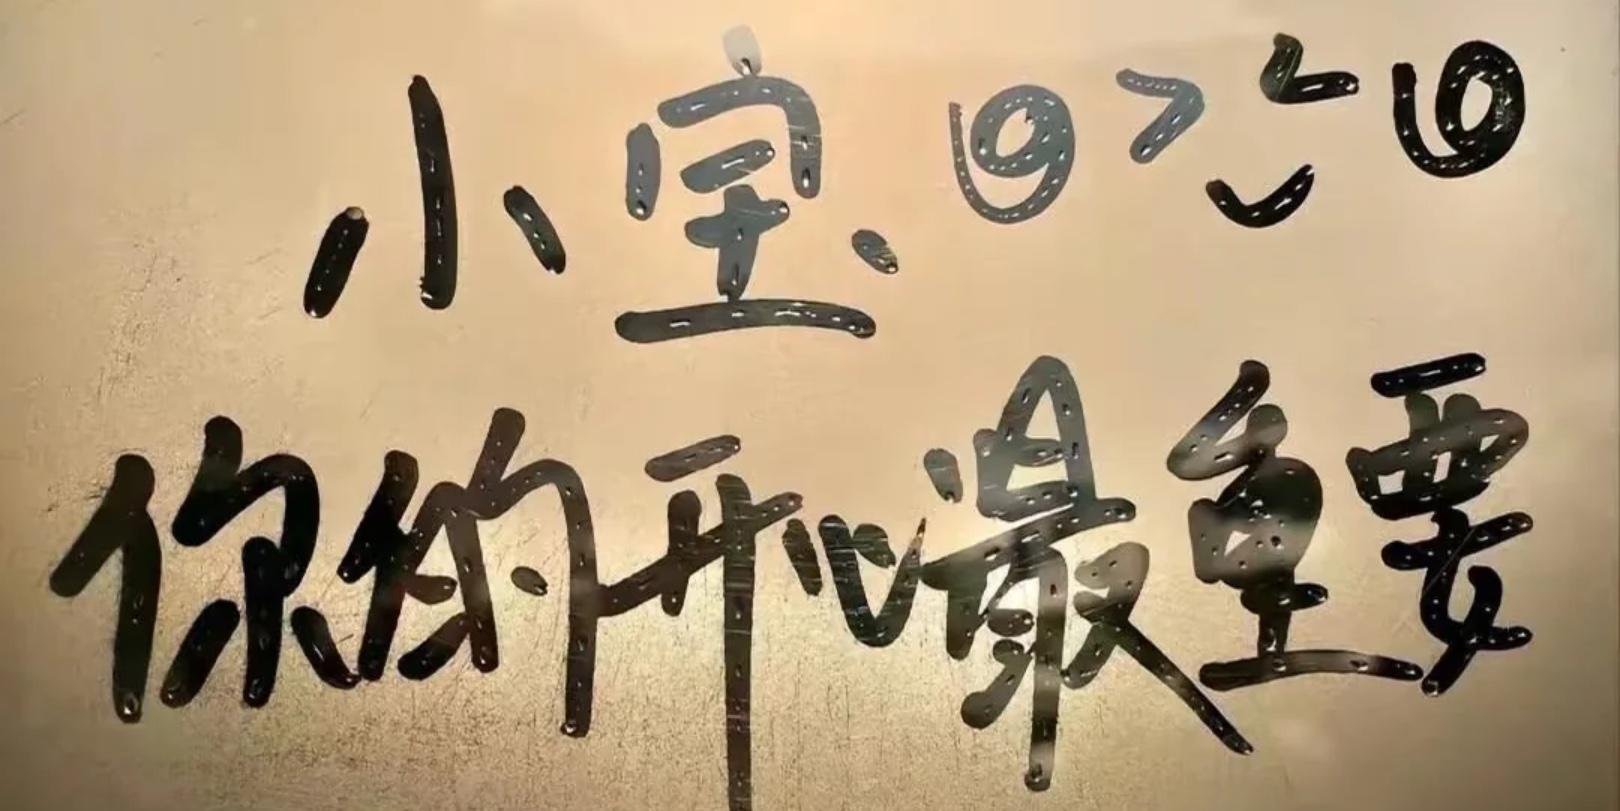 小宝
你的开心最重要